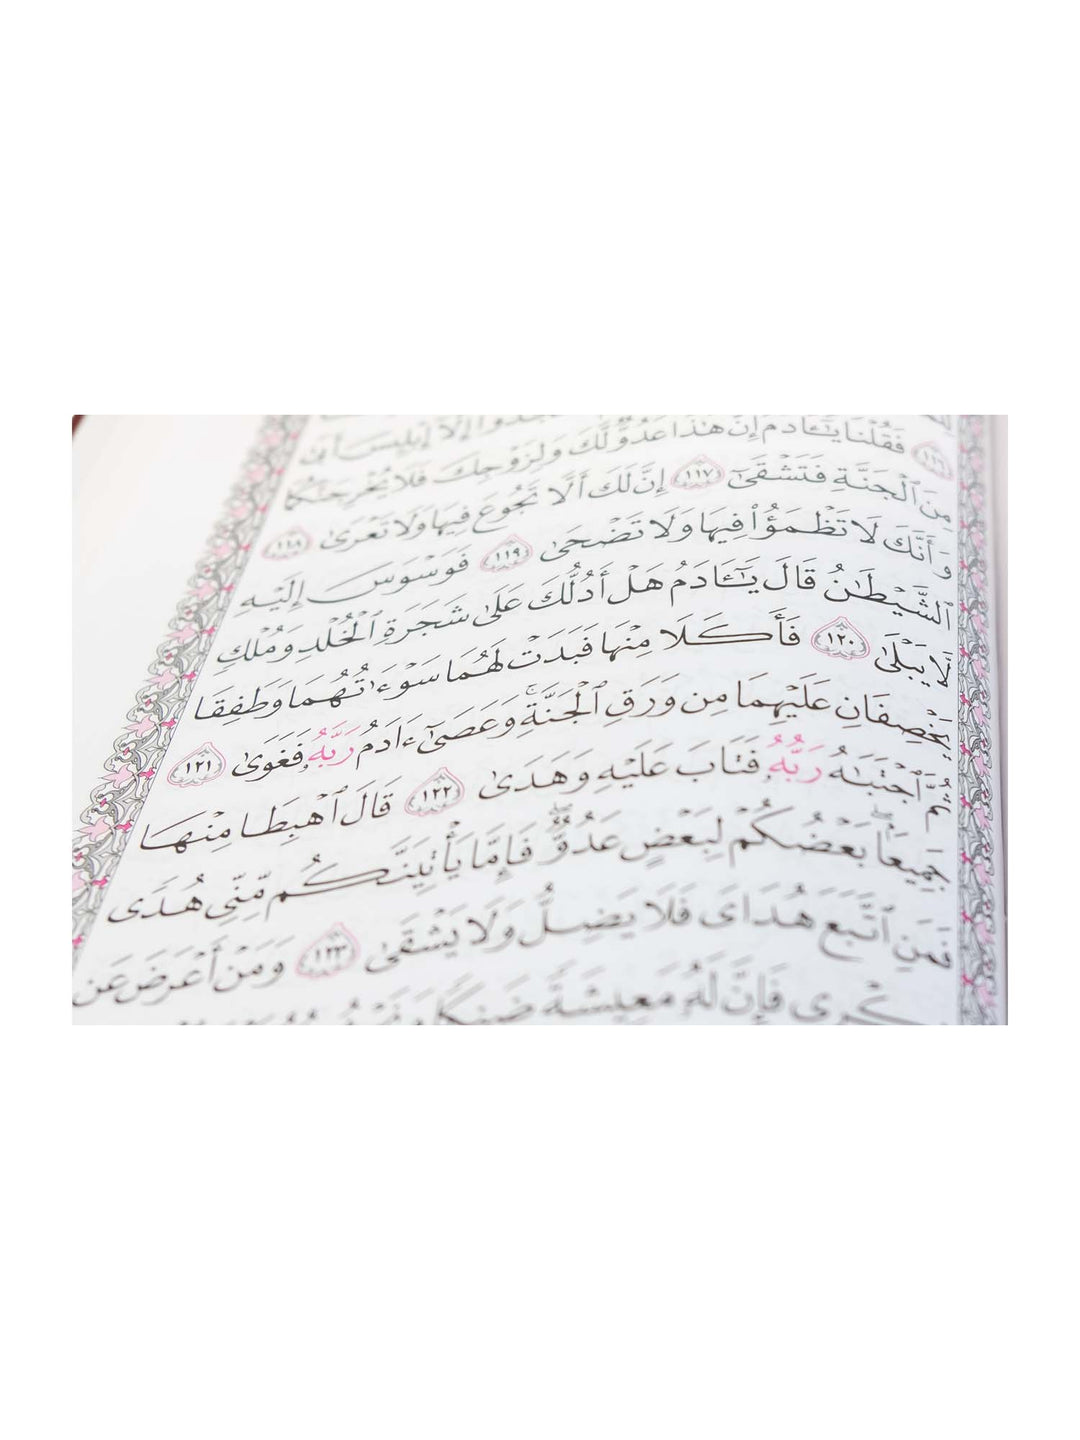 إِلَّآ إِبْلِيسَ أَبَىٰ
﴿١١٦﴾ فَقُلْنَا يَـٰٓـَٔادَمُ إِنَّ هَـٰذَا عَدُوٌّ لَّكَ وَلِزَوْجِكَ فَلَا يُخْرِجَنَّكُمَا
مِنَ ٱلْجَنَّةِ فَتَشْقَىٰٓ ﴿١١٧﴾ إِنَّ لَكَ أَلَّا تَجُوعَ فِيهَا وَلَا تَعْرَىٰ ﴿١١٨﴾
وَأَنَّكَ لَا تَظْمَؤُا۟ فِيهَا وَلَا تَضْحَىٰ ﴿١١٩﴾ فَوَسْوَسَ إِلَيْهِ
ٱلشَّيْطَـٰنُ قَالَ يَـٰٓـَٔادَمُ هَلْ أَدُلُّكَ عَلَىٰ شَجَرَةِ ٱلْخُلْدِ وَمُلْكٍ
لَّا يَبْلَىٰ ﴿١٢٠﴾ فَأَكَلَا مِنْهَا فَبَدَتْ لَهُمَا سَوْءَٰتُهُمَا وَطَفِقَا
يَخْصِفَانِ عَلَيْهِمَا مِن وَرَقِ ٱلْجَنَّةِ ۚ وَعَصَىٰٓ ءَادَمُ رَبَّهُۥ فَغَوَىٰ ﴿١٢١﴾
ثُمَّ ٱجْتَبَـٰهُ رَبُّهُۥ فَتَابَ عَلَيْهِ وَهَدَىٰ ﴿١٢٢﴾ قَالَ ٱهْبِطَا مِنْهَا
جَمِيعًۢا ۖ بَعْضُكُمْ لِبَعْضٍ عَدُوٌّ ۖ فَإِمَّا يَأْتِيَنَّكُم مِّنِّى هُدًى
فَمَنِ ٱتَّبَعَ هُدَاىَ فَلَا يَضِلُّ وَلَا يَشْقَىٰ ﴿١٢٣﴾ وَمَنْ أَعْرَضَ عَن
ذِكْرِى فَإِنَّ لَهُۥ مَعِيشَةً ضَنكًا